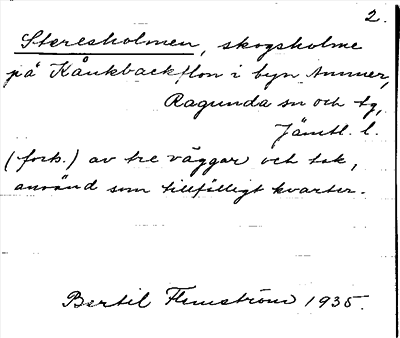 2.
Steresholmen, skogsholme
på Kåukbackflon i byn Ammer,
Ragunda sn och tg,
Jämtl. l.
(forts.) av tre väggar och tak,
använd som tillfälligt kvarter.
Bertil Flemström 1935.